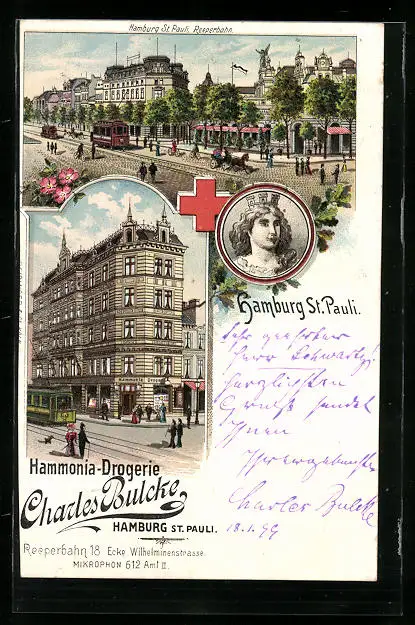 Hamburg St. Pauli, Reeperbahn.
Hamburg St. Pauli.
Sehr geehrter
Herr Schwartz!
herzlichsten
Gruß sendet
Ihnen
Ihr ergebenster
Charles Bulcke
18.1.99
Hammonia Droge
Hammonia-Drogerie
Charles Bulcke,
HAMBURG ST. PAULI.
Reeperbahn 18 Ecke Wilhelminenstrasse.
MIKROPHON 612 Amt II.